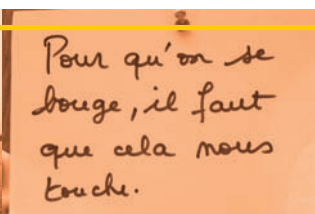 Pour qu'on se
bouge, il faut
que cela nous
touche.